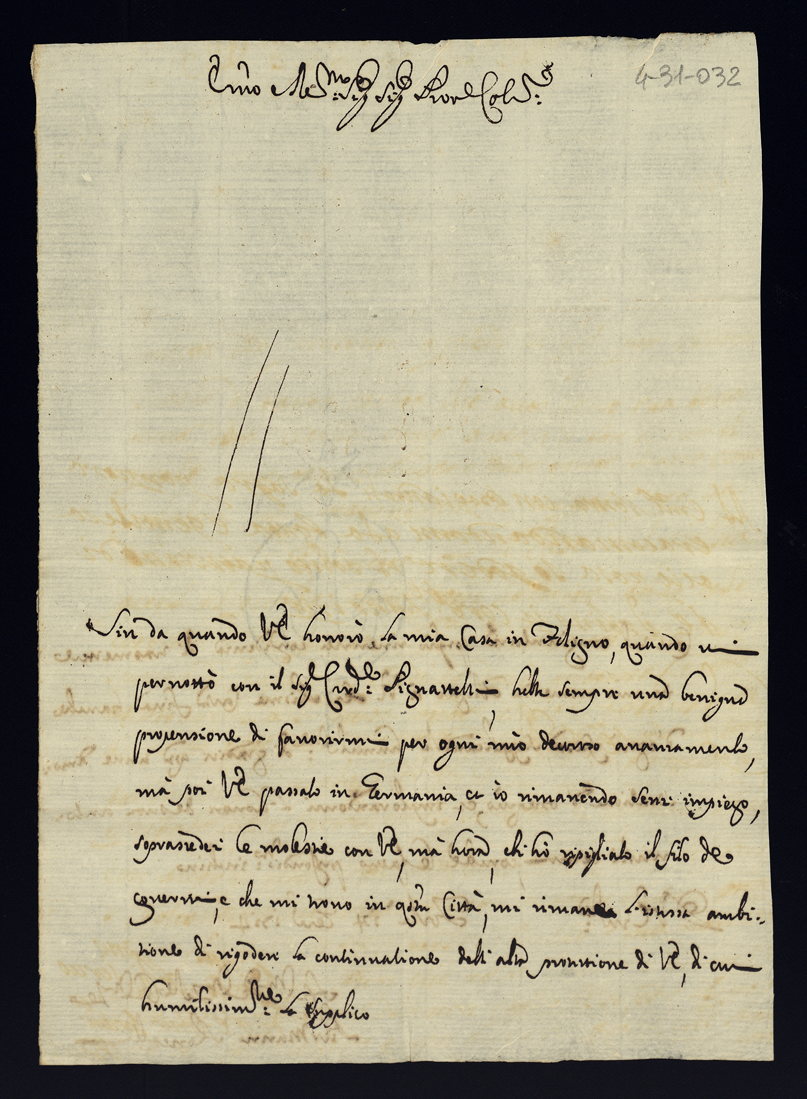 4-31-032
Em̃o Re.mo Sig.r Sig.r Prõn Col.mo
Sin da quando V.E. honorò la mia Casa in Foligno, quando vi
pernottò con il Sig.r Card.le Pignattelli, hebbe sempre una benigna
propensione di favorirmi per ogni mio decoroso avanzamento,
mà poi V.E. passato in Germania, et io rimanendo senz' impiego,
soprasiedei le molestie con V.E., mà hora, che hò ripigliato il filo de
governi, e che mi trovo in questa Città, mi rimane l'istessa ambi-
tione di rigodere la continuatione dell'alta protettione di V.E., di cui
humilissim.te la supplico